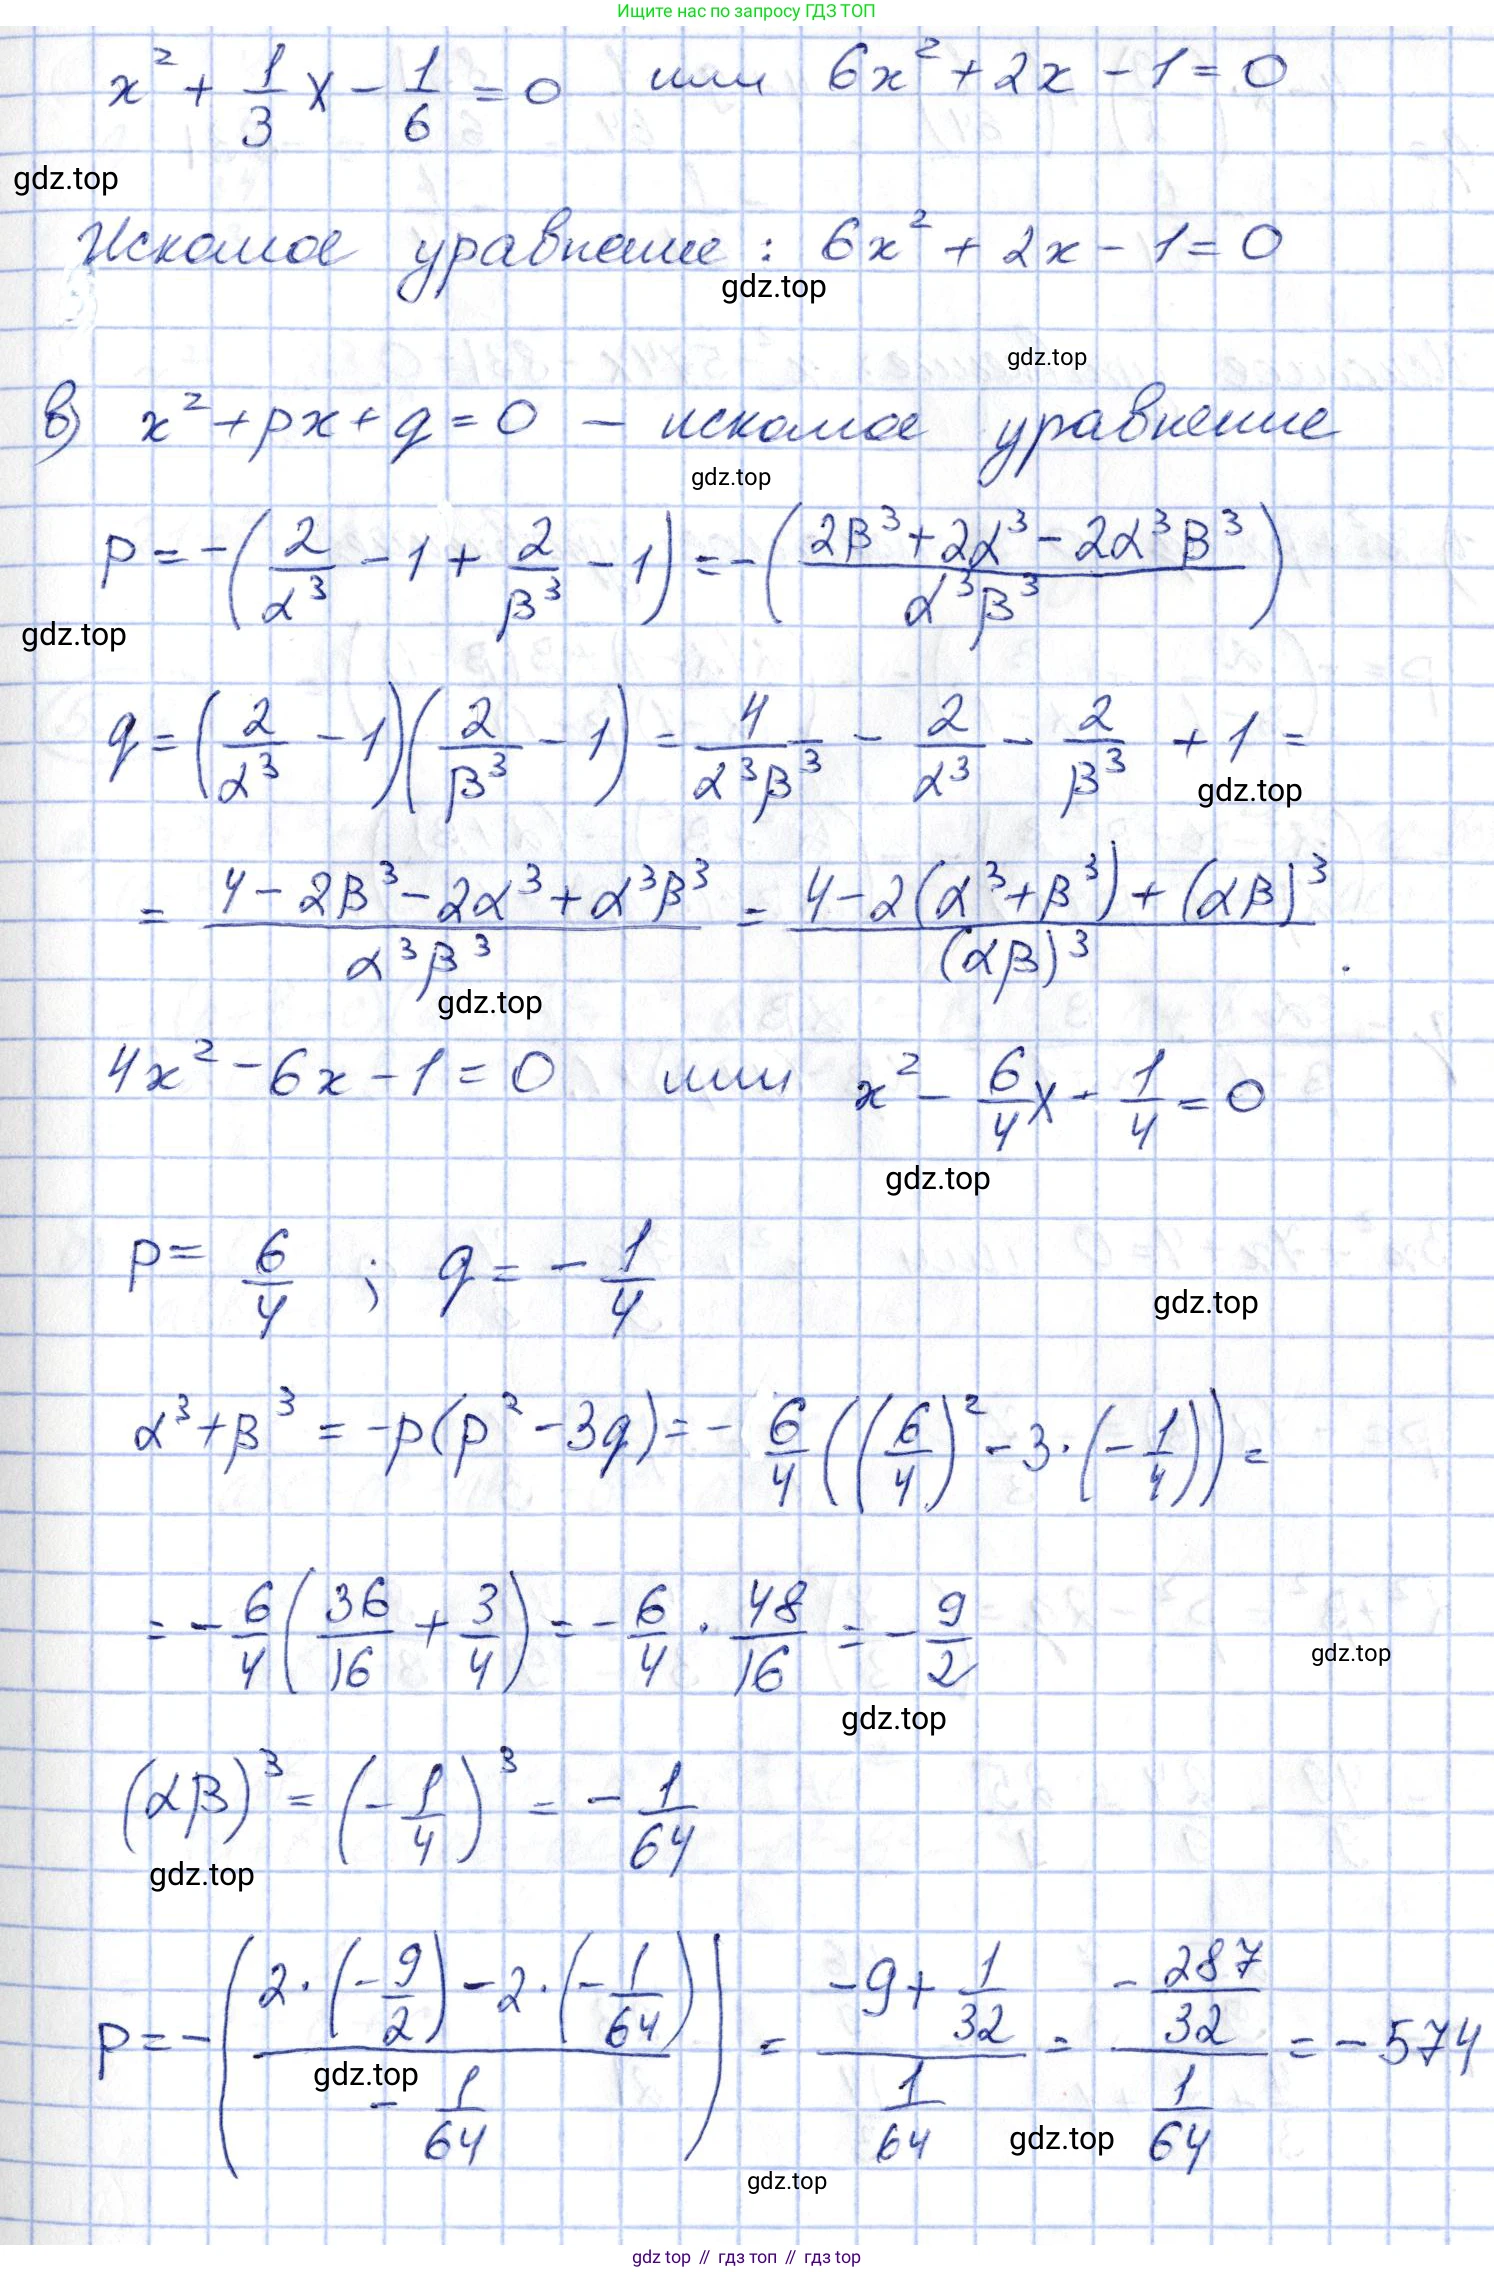 Ищите нас по запросу ГДЗ ТОП
x² + 1/3 x - 1/6 = 0 или 6x² + 2x - 1 = 0
gdz.top
Искомое уравнение: 6x² + 2x - 1 = 0
gdz.top
gdz.top
в) x² + px + q = 0 – искомое уравнение
gdz.top
p = -(2/α³ - 1 + 2/β³ - 1) = -((2β³ + 2α³ - 2α³β³)/(α³β³))
gdz.top
q = (2/α³ - 1)(2/β³ - 1) = 4/(α³β³) - 2/α³ - 2/β³ + 1 =
gdz.top
= (4 - 2β³ - 2α³ + α³β³)/(α³β³) = (4 - 2(α³ + β³) + (αβ)³)/(αβ)³.
gdz.top
4x² - 6x - 1 = 0 или x² - 6/4 x - 1/4 = 0
gdz.top
p = 6/4 ; q = - 1/4
gdz.top
α³ + β³ = -p(p² - 3q) = - 6/4 ((6/4)² - 3·(- 1/4)) =
= - 6/4 (36/16 + 3/4) = - 6/4 · 48/16 = - 9/2
gdz.top
gdz.top
(αβ)³ = (- 1/4)³ = - 1/64
gdz.top
p = -((2·(- 9/2) - 2·(- 1/64))/(- 1/64)) = (-9 + 1/32)/(1/64) = (- 287/32)/(1/64) = - 574
gdz.top
gdz.top
gdz.top
gdz top // гдз топ // гдз top